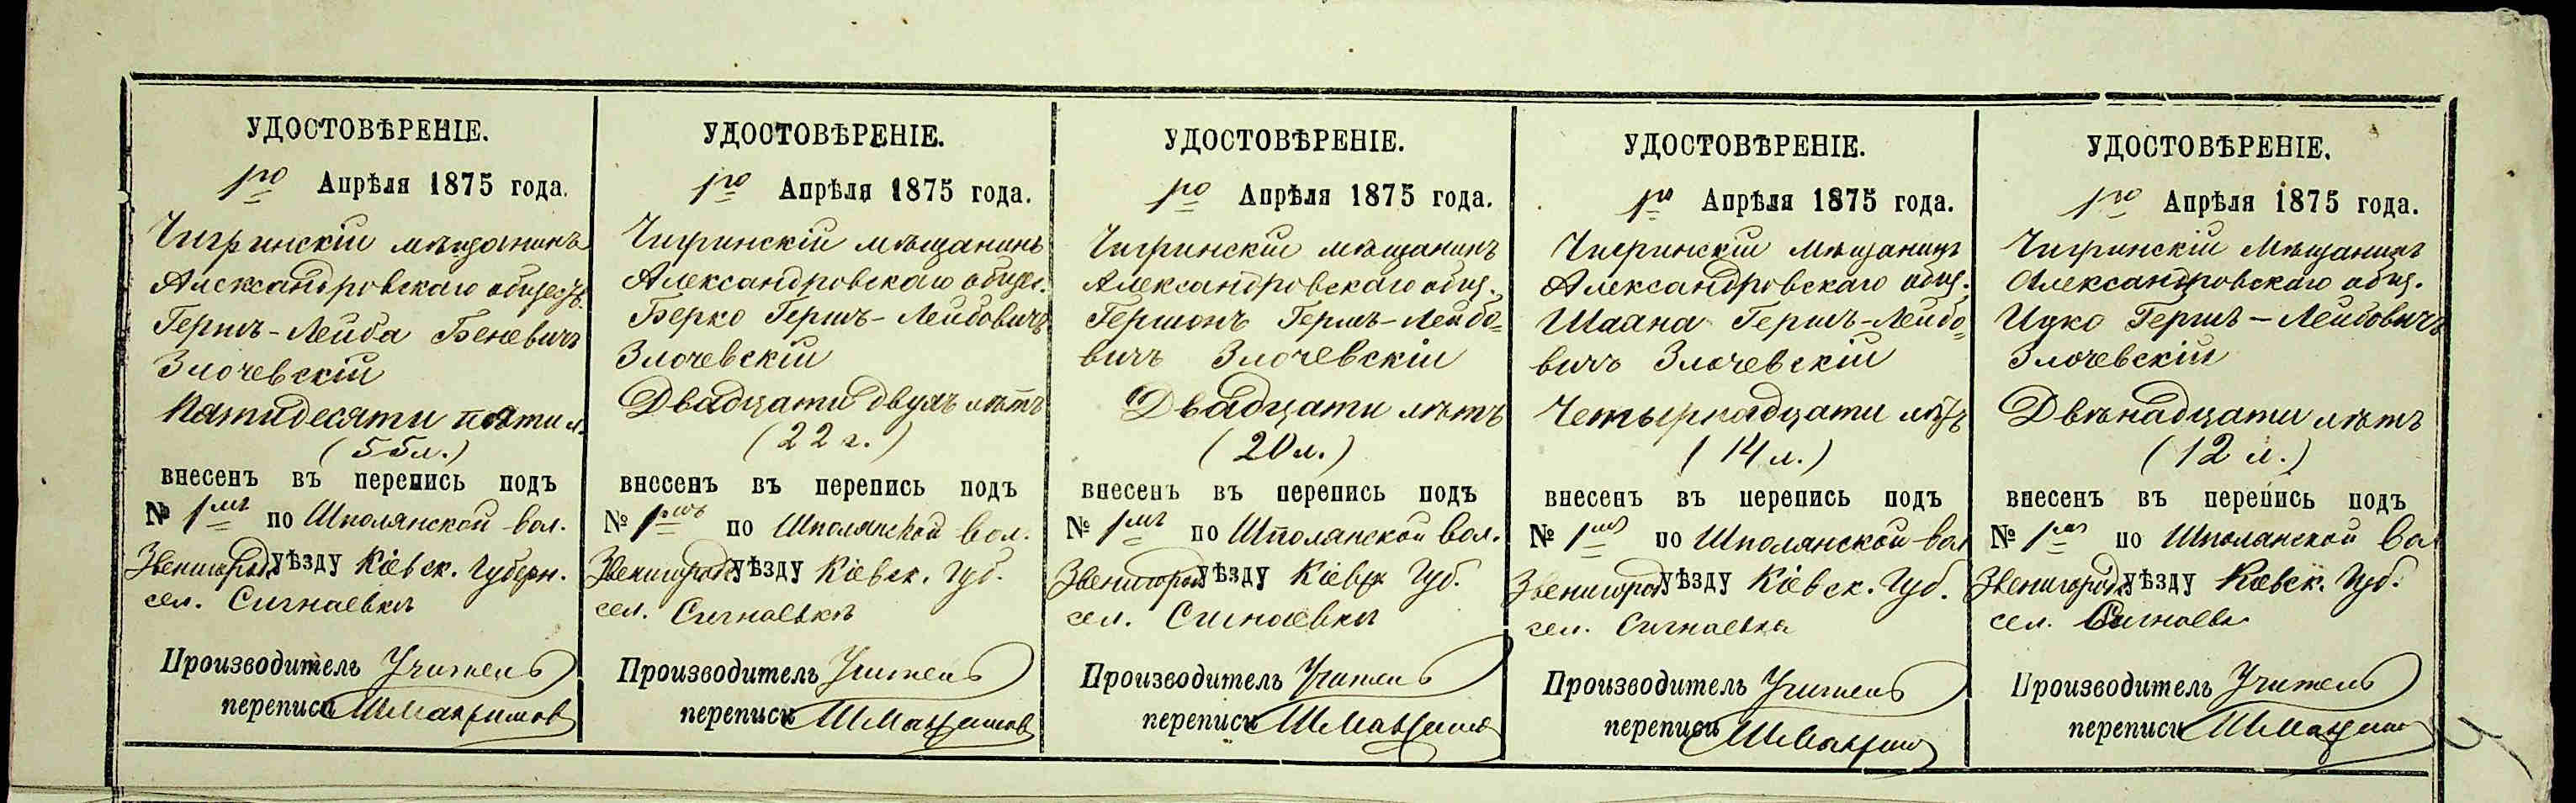 УДОСТОВѢРЕНІЕ.
1го Апрѣля 1875 года.
Чигринскій мѣщанинъ
Александровскаго общест.
Гершъ-Лейба Беневичъ
Злочевскій
Пятидесяти пяти л.
(55 л.)
внесенъ въ перепись подъ
№ 1мъ по Шполянской вол.
Звенигород. уѣзду Кіевск. Губерн.
сел. Сигнаевкѣ
Производитель Учитель
переписи
УДОСТОВѢРЕНІЕ.
1го Апрѣля 1875 года.
Чигринскій мѣщанинъ
Александровскаго общес.
Берко Гершъ-Лейбовичъ
Злочевскій
Двадцати двухъ лѣтъ
(22 г.)
внесенъ въ перепись подъ
№ 1мъ по Шполянской вол.
Звенигород. уѣзду Кіевск. Губ.
сел. Сигнаевкѣ
Производитель Учитель
переписи
УДОСТОВѢРЕНІЕ.
1го Апрѣля 1875 года.
Чигринскій мѣщанинъ
Александровскаго общ.
Гершонъ Гершъ-Лейбо=
вичъ Злочевскій
Двадцати лѣтъ
(20 л.)
внесенъ въ перепись подъ
№ 1мъ по Шполянской вол.
Звенигород. уѣзду Кіевск. Губ.
сел. Сигнаевкѣ
Производитель Учитель
переписи
УДОСТОВѢРЕНІЕ.
1го Апрѣля 1875 года.
Чигринскій мѣщанинъ
Александровскаго общ.
Шаана Гершъ-Лейбо=
вичъ Злочевскій
Четырнадцати лѣтъ
(14 л.)
внесенъ въ перепись подъ
№ 1мъ по Шполянской вол
Звенигород. уѣзду Кіевск. Губ.
сел. Сигнаевка
Производитель Учитель
переписи
УДОСТОВѢРЕНІЕ.
1го Апрѣля 1875 года.
Чигринскій мѣщанинъ
Александровскаго общ.
Ицко Гершъ-Лейбовичъ
Злочевскій
Двѣнадцати лѣтъ
(12 л.)
внесенъ въ перепись подъ
№ 1мъ по Шполянской во
Звенигород. уѣзду Кіевск. Губ.
сел. Сигнаевк
Производитель Учитель
переписи